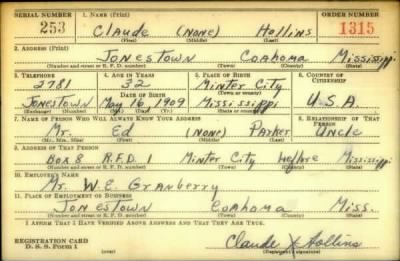 SERIAL NUMBER 1. NAME (Print) ORDER NUMBER
253 Claude (NONE) Hollins 1315
(First) (Middle) (Last)
2. ADDRESS (Print)
JONESTOWN COAHOMA MISSISSIPPI
(Number and street or R. F. D. number) (Town) (County) (State)
3. TELEPHONE 4. AGE IN YEARS 5. PLACE OF BIRTH 6. COUNTRY OF CITIZENSHIP
2781 32 Minter City
DATE OF BIRTH (Town or county)
JONESTOWN May 16, 1909 Mississippi U.S.A.
(Exchange) (Number) (Mo.) (Day) (Yr.) (State or country)
7. NAME OF PERSON WHO WILL ALWAYS KNOW YOUR ADDRESS 8. RELATIONSHIP OF THAT PERSON
Mr. Ed (NONE) Parker Uncle
(Mr., Mrs., Miss) (First) (Middle) (Last)
9. ADDRESS OF THAT PERSON
Box 8 R.F.D. 1 Minter City Mississippi
(Number and street or R. F. D. number) (Town) (County) (State)
10. EMPLOYER'S NAME
Mr. W. E. Granberry
11. PLACE OF EMPLOYMENT OR BUSINESS
JONESTOWN COAHOMA Miss.
(Number and street or R. F. D. number) (Town) (County) (State)
I AFFIRM THAT I HAVE VERIFIED ABOVE ANSWERS AND THAT THEY ARE TRUE.
REGISTRATION CARD
D. S. S. Form 1 (over) Claude Hollins
(Registrant's signature)